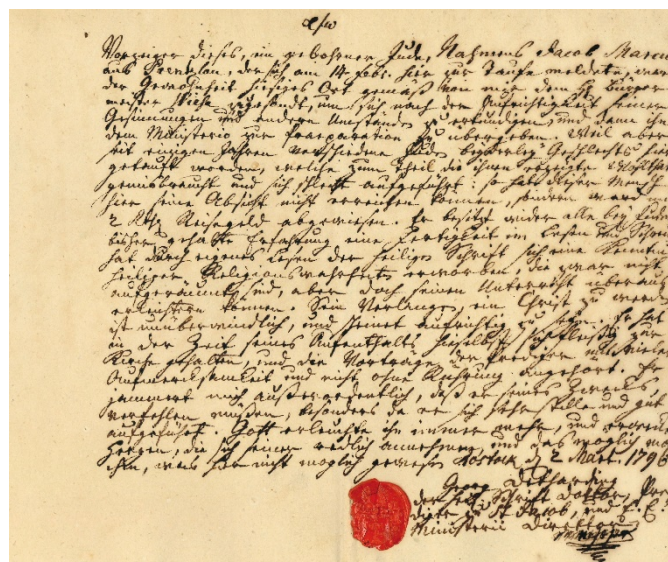 Vorzeiger dieses, ein gebohrner Jude, Nahmens Jacob Marcu
aus Prenzlau, der sich am 14 Febr. hier zur Taufe meldete, war
der Gewohnheit hiesiges Ort gemäß von mir dem H. Burger
meister zugesandt, um sich nach der Aufrichtigkeit seiner
Gesinnungen und andern Umständen zu erkundigen, und dann ihn
dem Ministerio zur Praeparation zu übergeben. Weil aber
seit einigen Jahren verschiedene Juden beyderley Geschlechts hie
getauft worden, welche zum Theil die ihnen erzeigte Wohltha
gemisbraucht und sich schlecht aufgeführt: so hat dieser Mensch
hier seine Absicht nicht erreichen können, sondern ward
2 Rthlr Reisegeld abgewiesen. Er besitzt wider alle bey Juden
bisher gehabte Erfahrung eine Fertigkeit im Lesen und Schrei
hat durch eigenes Lesen der heiligen Schrift sich eine Kenntni
heiliger Religionswahrheiten erworben, die zwar nicht
aufgeräumt sind, aber doch seinen Unterricht überaus
erleichtern können. Sein Verlangen, ein Christ zu werde
ist unüberwindlich, und scheinet aufrichtig zu seyn. Er hat
in der Zeit seines Aufenthalts hieselbst sich fleißig zur
Kirche gehalten, und die Vorträge der Prediger mit vieler
Aufmerksamkeit und nicht ohne Rührung angehört. Er
jammert mich außerordentlich, daß er seines Zwecks
verfehlen müßen, besonders da er sich sehr stille und gut
aufgeführt. Gott erleuchte ihn immer mehr, und erwecke
Herzen, die sich seiner redlich annehmen, und das möglich ma
ihm, was hier nicht möglich gewesen Rostock d 2 Mart. 1796
Georg Detharding
der heil. Schrift Doctor, Pre
diger zu St Jacob, und E. E.
Ministerii Director